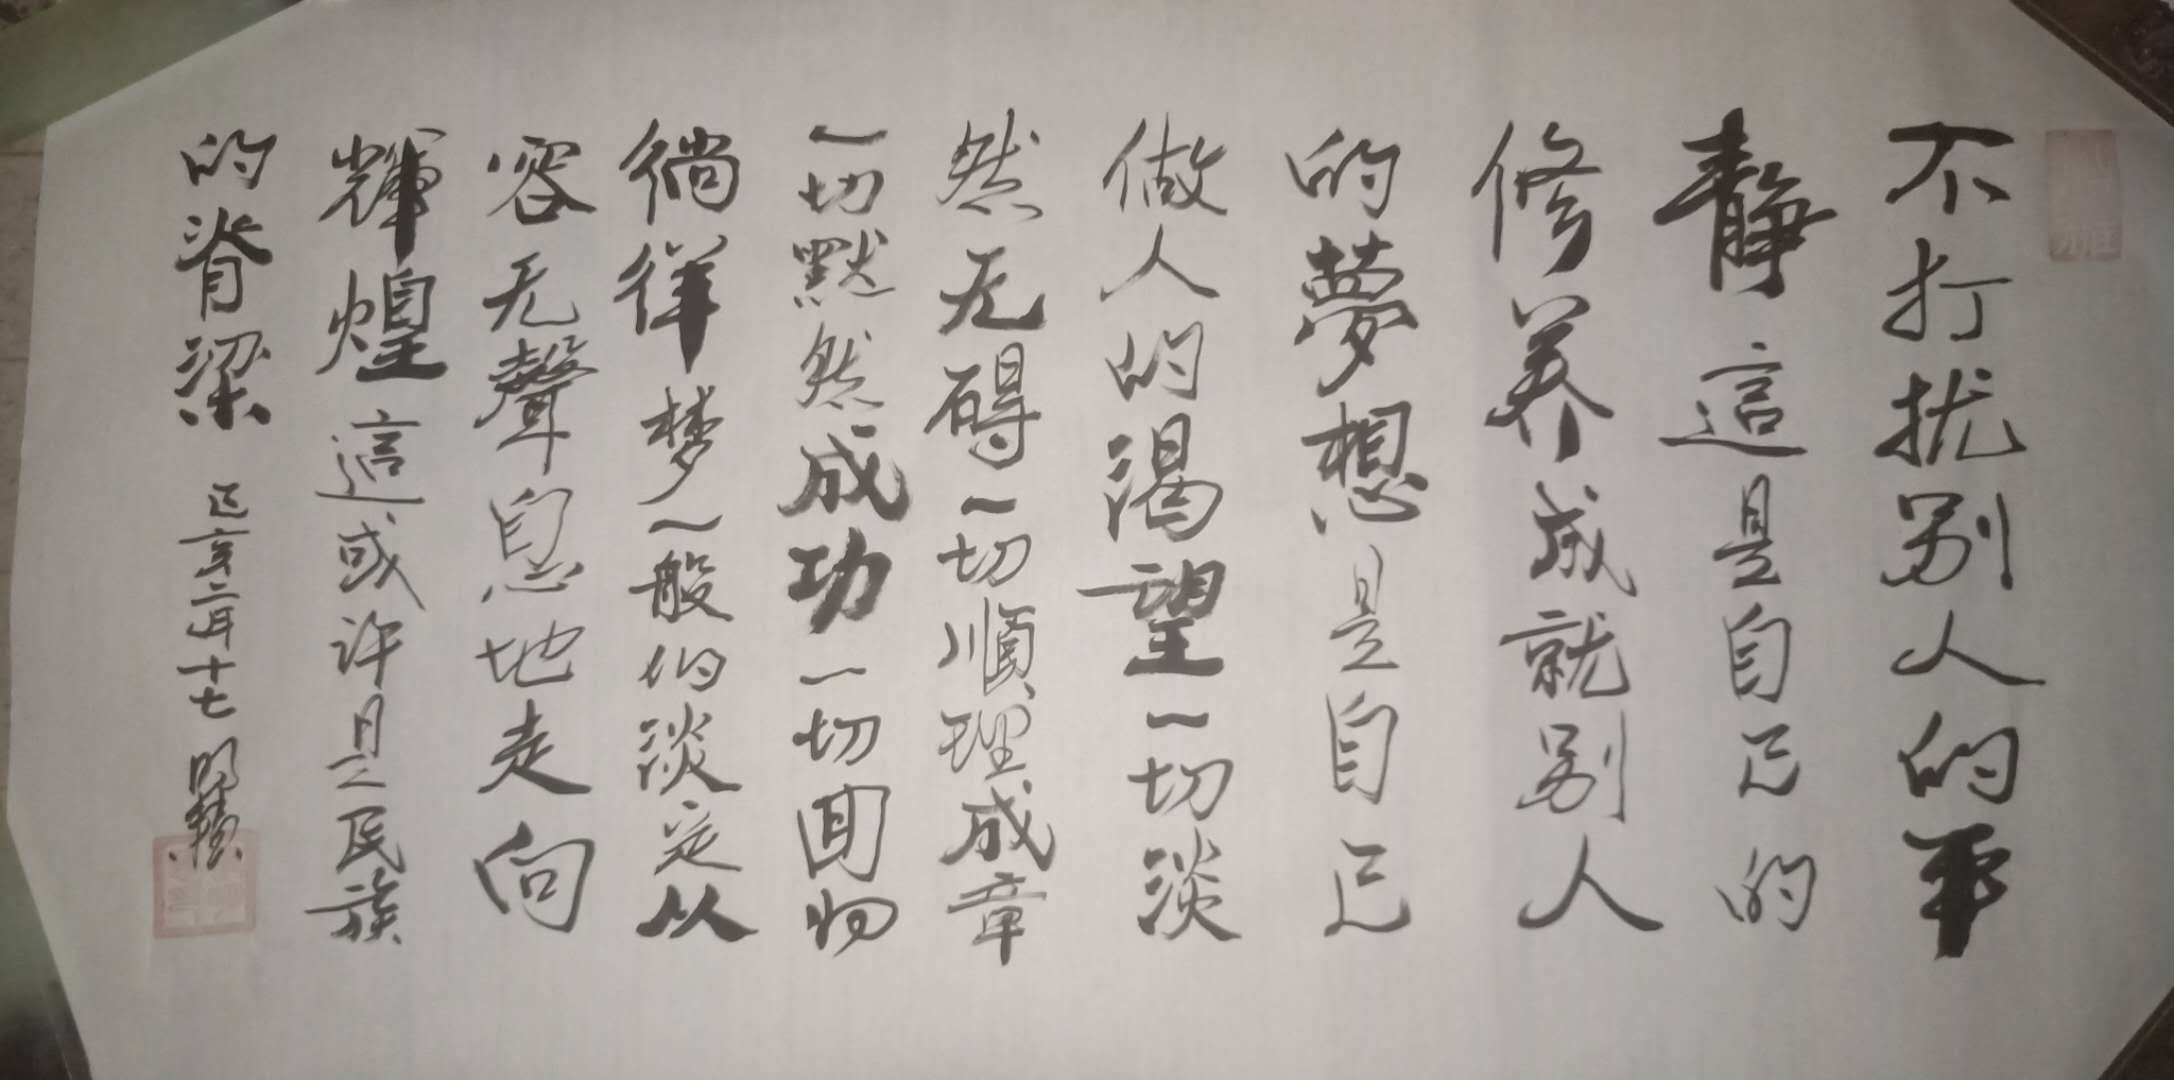 不打扰别人的平
靜這是自己的
修养成就别人
的夢想是自己
做人的渴望一切淡
然无碍一切順理成章
一切默然成功一切回归
徜徉梦一般的淡定从
容无聲息地走向
輝煌這或许是民族
的脊梁 己亥年二月十七